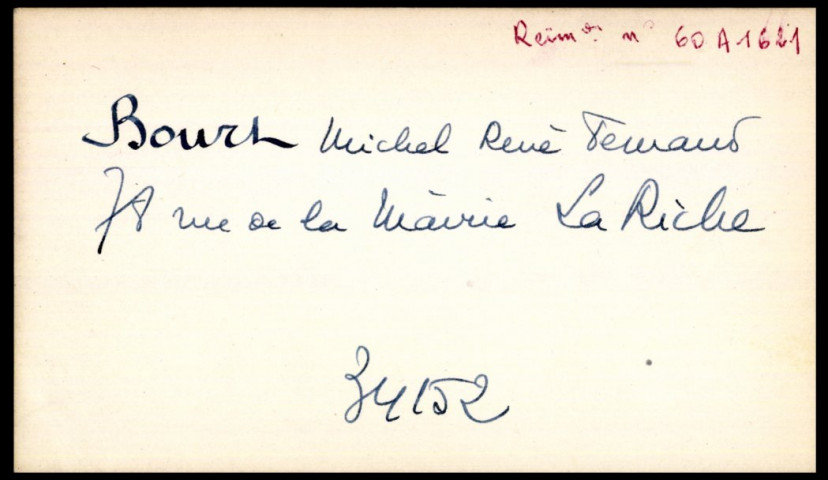 Reim°ⁿ n° 60 A 1621
Bourt Michel René Fernand
78 rue de la Mairie La Riche
34152